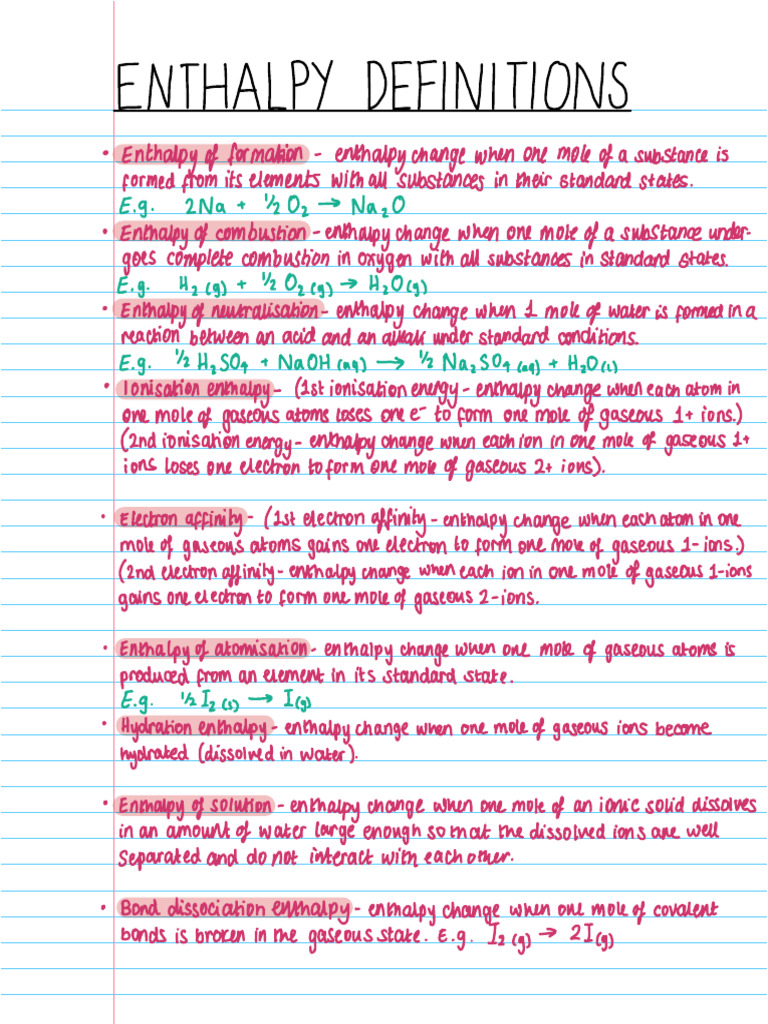 ENTHALPY DEFINITIONS
• Enthalpy of formation - enthalpy change when one mole of a substance is
formed from its elements with all substances in their standard states.
E.g. 2Na + ½O₂ → Na₂O
• Enthalpy of combustion - enthalpy change when one mole of a substance under-
goes complete combustion in oxygen with all substances in standard states.
E.g. H₂(g) + ½O₂(g) → H₂O(g)
• Enthalpy of neutralisation - enthalpy change when 1 mole of water is formed in a
reaction between an acid and an alkali under standard conditions.
E.g. ½H₂SO₄ + NaOH(aq) → ½Na₂SO₄(aq) + H₂O(l)
• Ionisation enthalpy - (1st ionisation energy - enthalpy change when each atom in
one mole of gaseous atoms loses one e⁻ to form one mole of gaseous 1+ ions.)
(2nd ionisation energy - enthalpy change when each ion in one mole of gaseous 1+
ions loses one electron to form one mole of gaseous 2+ ions).
• Electron affinity - (1st electron affinity - enthalpy change when each atom in one
mole of gaseous atoms gains one electron to form one mole of gaseous 1- ions.)
(2nd electron affinity - enthalpy change when each ion in one mole of gaseous 1-ions
gains one electron to form one mole of gaseous 2-ions.
• Enthalpy of atomisation - enthalpy change when one mole of gaseous atoms is
produced from an element in its standard state.
E.g. ½I₂(s) → I(g)
• Hydration enthalpy - enthalpy change when one mole of gaseous ions become
hydrated (dissolved in water).
• Enthalpy of solution - enthalpy change when one mole of an ionic solid dissolves
in an amount of water large enough so that the dissolved ions are well
separated and do not interact with each other.
• Bond dissociation enthalpy - enthalpy change when one mole of covalent
bonds is broken in the gaseous state. E.g. I₂(g) → 2I(g)